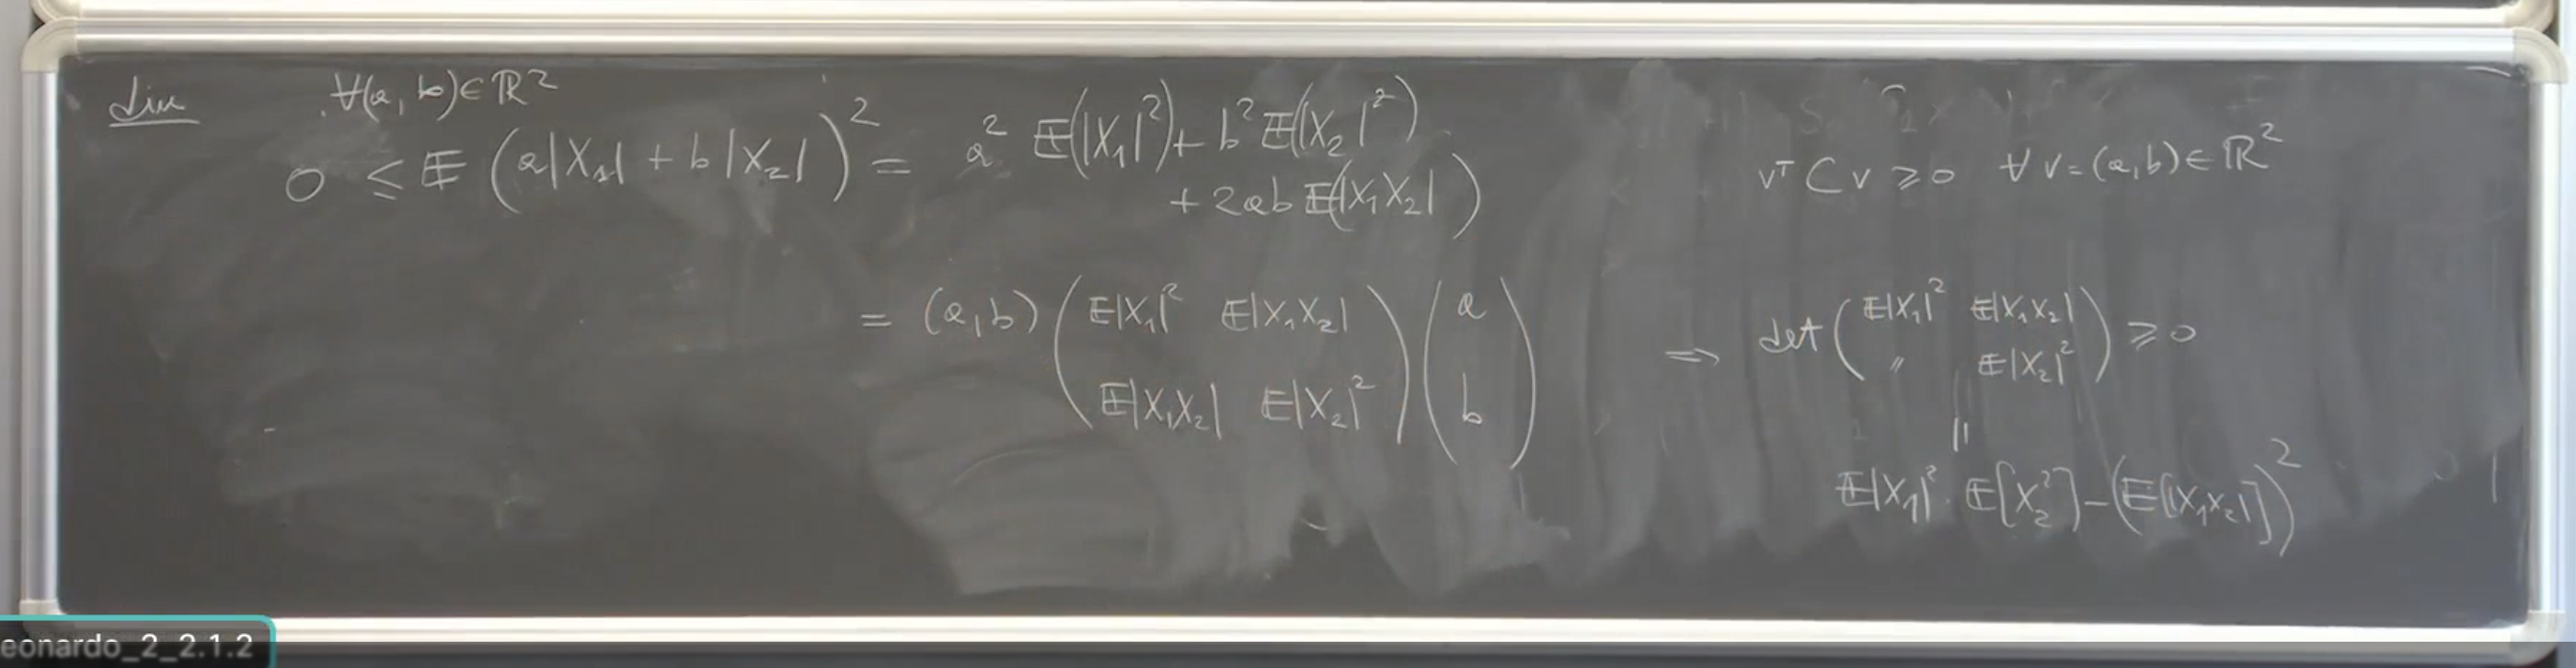 dim ∀(a, b) ∈ ℝ²
0 ≤ 𝔼 (a|X₁| + b|X₂|)² = a² 𝔼(|X₁|²) + b² 𝔼(|X₂|²)
+ 2ab 𝔼(|X₁X₂|)
= (a, b) ( 𝔼|X₁|² 𝔼|X₁X₂|
𝔼|X₁X₂| 𝔼|X₂|² ) ( a
b )
vᵀ C v ≥ 0 ∀ v = (a, b) ∈ ℝ²
⇒ det ( 𝔼|X₁|² 𝔼|X₁X₂|
〃 𝔼|X₂|² ) ≥ 0
||
𝔼|X₁|² · 𝔼[X₂²] − (𝔼[|X₁X₂|])²
eonardo_2_2.1.2